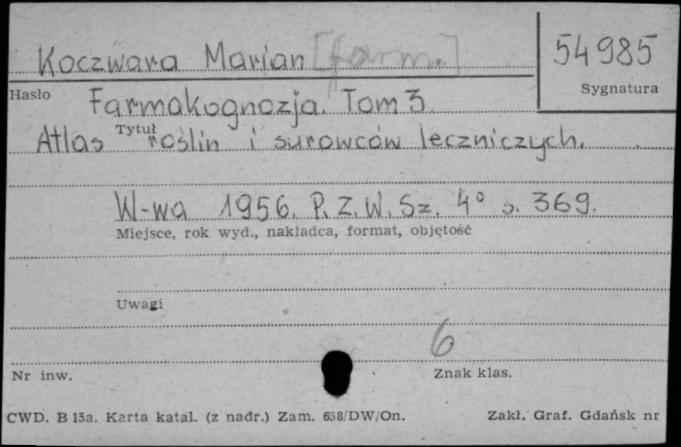 Koczwara Marian [farm.]
54985
Sygnatura
Hasło
Farmakognozja. Tom 3
Tytuł
Atlas roślin i surowców leczniczych.
W-wa 1956. P.Z.W.Sz. 4° s. 369.
Miejsce, rok wyd., nakładca, format, objętość
Uwagi
6
Nr inw.
Znak klas.
CWD. B 15a. Karta katal. (z nadr.) Zam. 638/DW/On.
Zakł. Graf. Gdańsk nr